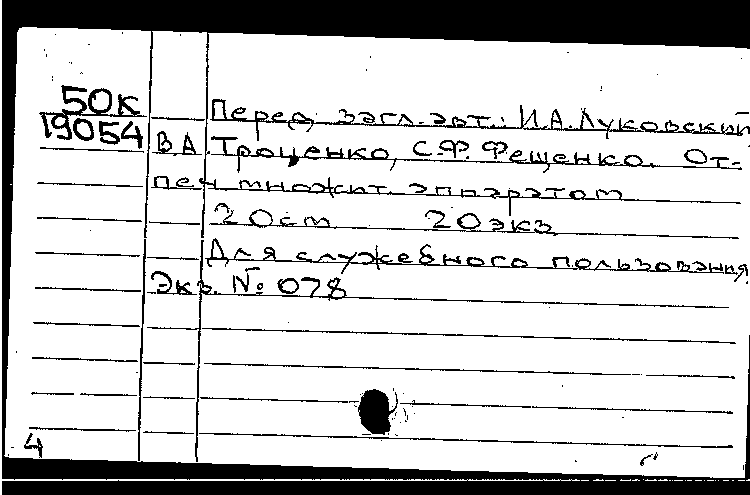 50К
19054
Перед загл. авт.: И.А. Луковский,
В.А. Троценко, С.Ф. Фещенко. От-
печ. множит. аппаратом
20 ст 20 экз
Для служебного пользования.
Экз. № 078
4